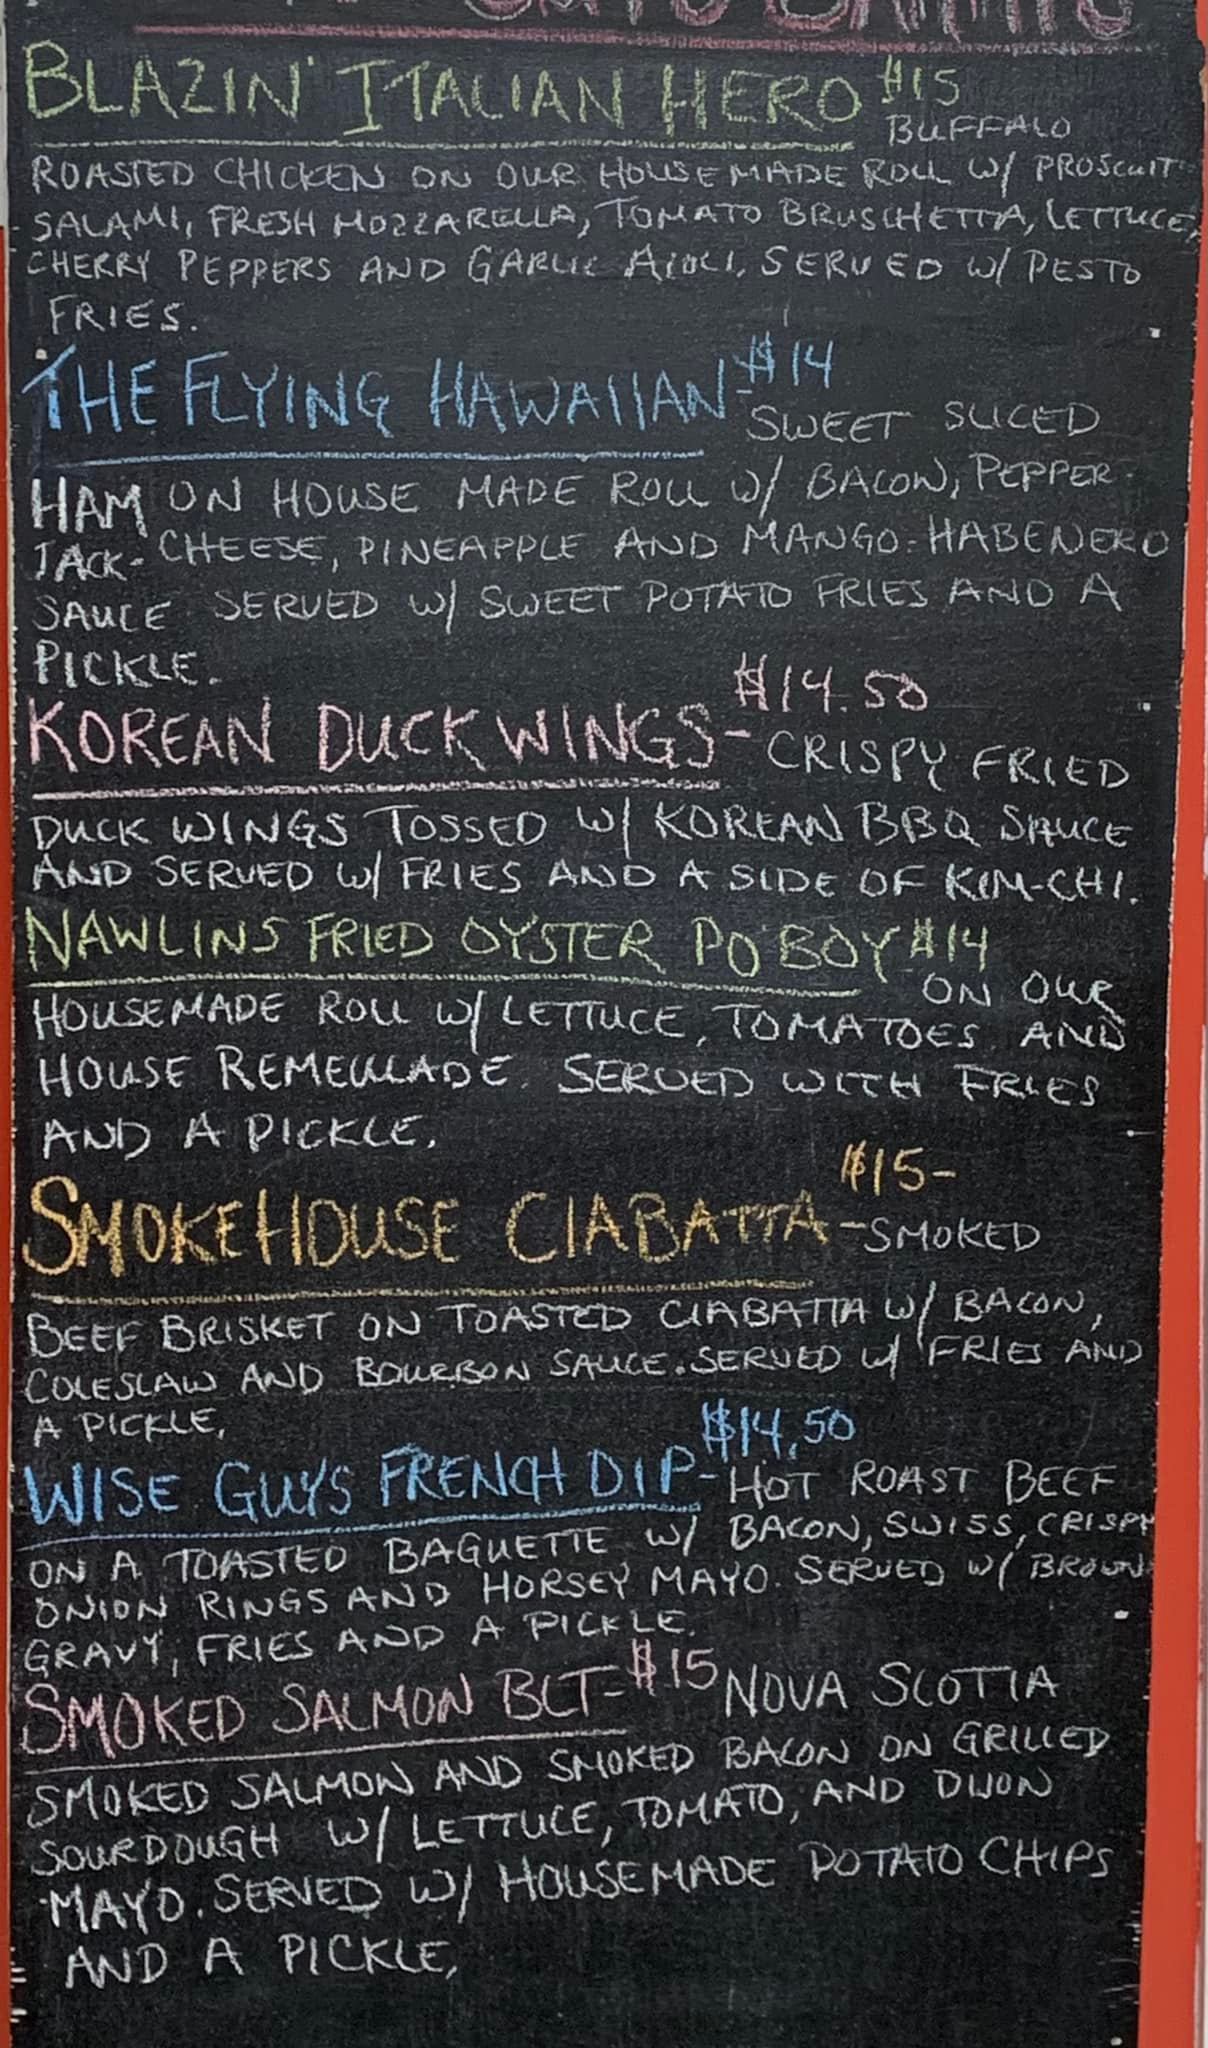 BLAZIN' ITALIAN HERO $15
BUFFALO
ROASTED CHICKEN ON OUR HOUSEMADE ROLL W/ PROSCUIT
SALAMI, FRESH MOZZARELLA, TOMATO BRUSCHETTA, LETTUCE,
CHERRY PEPPERS AND GARLIC AIOLI. SERVED W/ PESTO
FRIES.
THE FLYING HAWAIIAN - $14
SWEET SLICED
HAM ON HOUSE MADE ROLL W/ BACON, PEPPER-
JACK- CHEESE, PINEAPPLE AND MANGO-HABENERO
SAUCE SERVED W/ SWEET POTATO FRIES AND A
PICKLE.
KOREAN DUCK WINGS - $14.50
CRISPY FRIED
DUCK WINGS TOSSED W/ KOREAN BBQ SAUCE
AND SERVED W/ FRIES AND A SIDE OF KIM-CHI.
NAWLINS FRIED OYSTER PO'BOY $14
ON OUR
HOUSEMADE ROLL W/ LETTUCE, TOMATOES AND
HOUSE REMEULADE. SERVED WITH FRIES
AND A PICKLE.
SMOKEHOUSE CIABATTA $15-
-SMOKED
BEEF BRISKET ON TOASTED CIABATTA W/ BACON,
COLESLAW AND BOURBON SAUCE. SERVED W/ FRIES AND
A PICKLE.
WISE GUYS FRENCH DIP - $14.50
HOT ROAST BEEF
ON A TOASTED BAGUETTE W/ BACON, SWISS, CRISPY
ONION RINGS AND HORSEY MAYO. SERVED W/ BROWN
GRAVY, FRIES AND A PICKLE.
SMOKED SALMON BLT - $15 NOVA SCOTIA
SMOKED SALMON AND SMOKED BACON ON GRILLED
SOURDOUGH W/ LETTUCE, TOMATO, AND DIJON
MAYO. SERVED W/ HOUSEMADE POTATO CHIPS
AND A PICKLE.